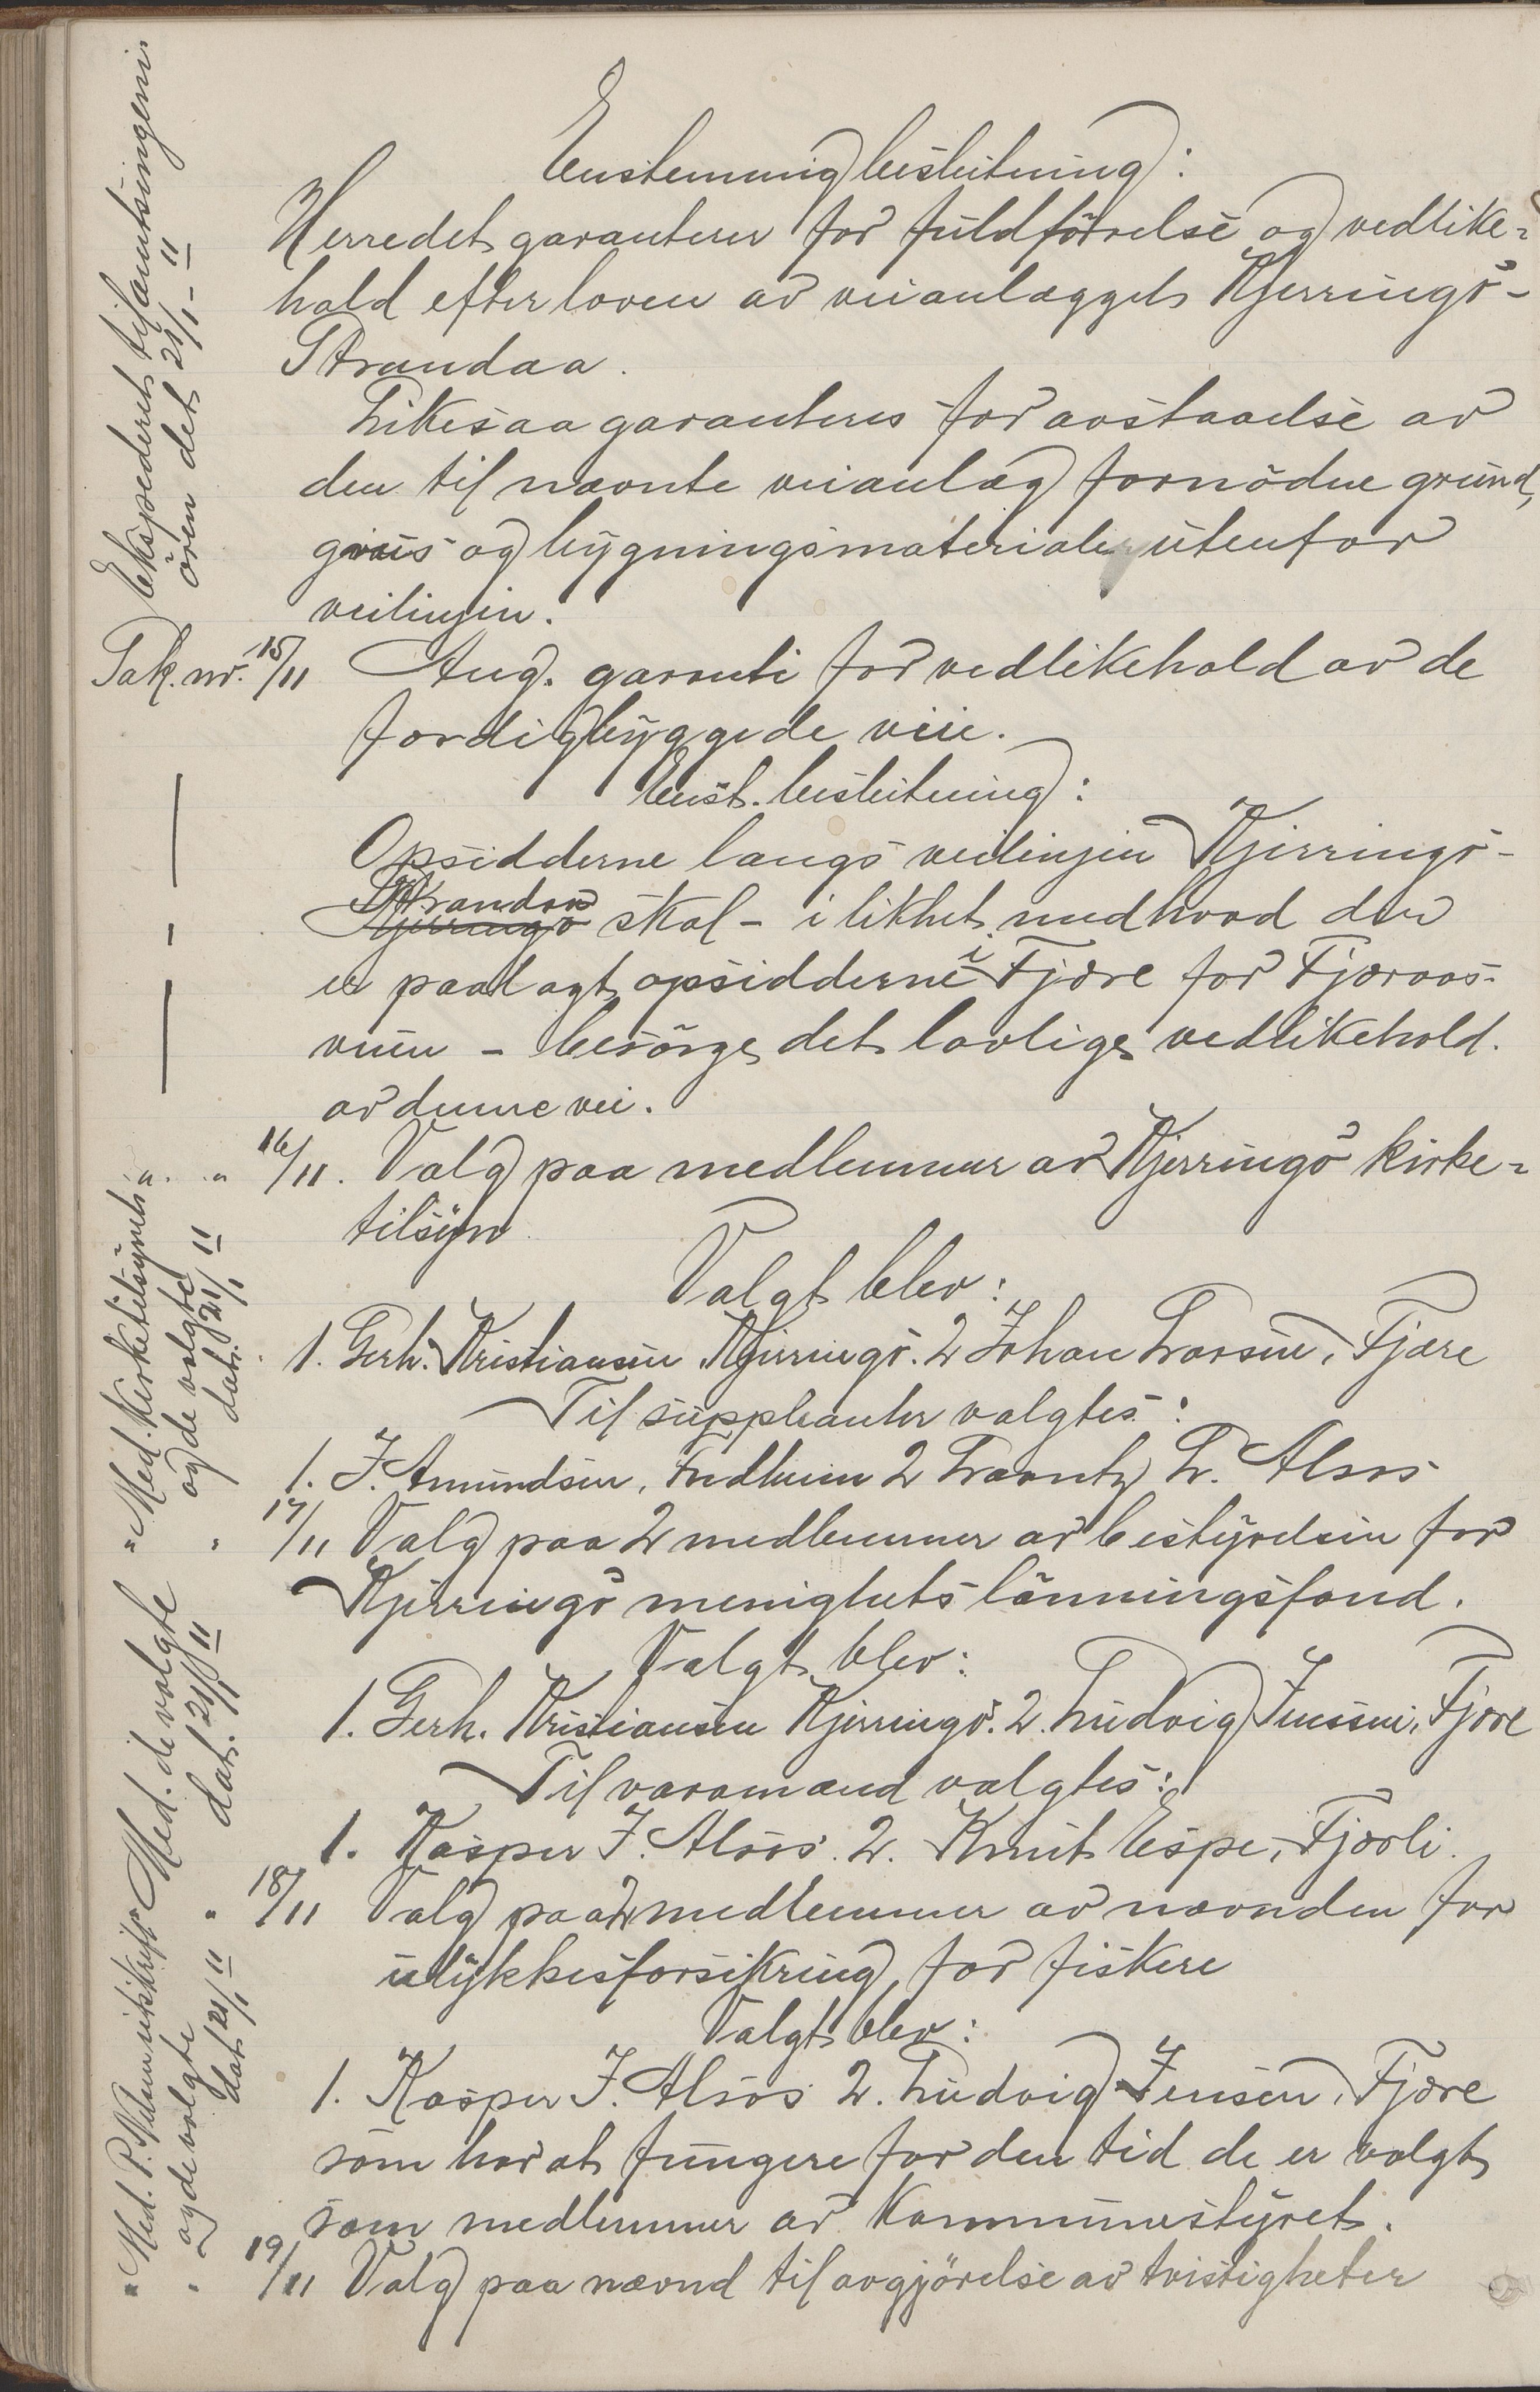 Enstemmig beslutning:
Herredet garanterer for fuldförelse og vedlike-
hold efter loven av veianlægget Kjerringö-
Strandaa.
Likesaa garanteres for avstaaelse av
den til nævnte veianlæg fornödne grund,
grus og bygningsmaterialer utenfor
veilinjen.
Sak. nr. 15/11 Ang. garanti for vedlikehold av de
færdigbyggede veie.
Enst. beslutning:
Opsidderne langs veilinjen Kjerringö-
Strandaa
Kjerringö skal - i likhet med hvad der
er paalagt opsidderne i Fjære for Fjæraas-
veien - besörge det lovlige vedlikehold
av denne vei.
" " 16/11. Valg paa medlemmer av Kjerringö kirke-
tilsyn
Valgt blev:
1. Gerh. Kristiansen Kjerringö. 2 Johan Larsen, Fjære
Til suppleanter valgtes:
1. J. Amundsen, 2 Lorentz L. Alsos
" " 17/11 Valg paa 2 medlemmer av bestyrelsen for
Kjerringö menighets lönningsfond.
Valgt blev:
1. Gerh. Kristiansen Kjerringö. 2. Ludvig Jenssen, Fjære
Til varamænd valgtes:
1. Kasper J. Alsos. 2. Knut Espe, Fjærli.
" 18/11 Valg paa 2 medlemmer av nævnden for
ulykkesforsikring for fiskere
Valgt blev:
1. Kasper J. Alsos 2. Ludvig Jensen, Fjære
som har at fungere for den tid de er valgt
som medlemmer av Kommunestyret.
" " 19/11 Valg paa nævnd til avgjörelse av tvistigheter
Ekspederet til amtsingeni-
ören det 21/1 - 11
Med. Kirketilsynet
og de valgte
dat. 21/1 11
Med. de valgte
dat. 21/1 11
Med. P. Nilsen utskrift
og de valgte
dat 21/1 11